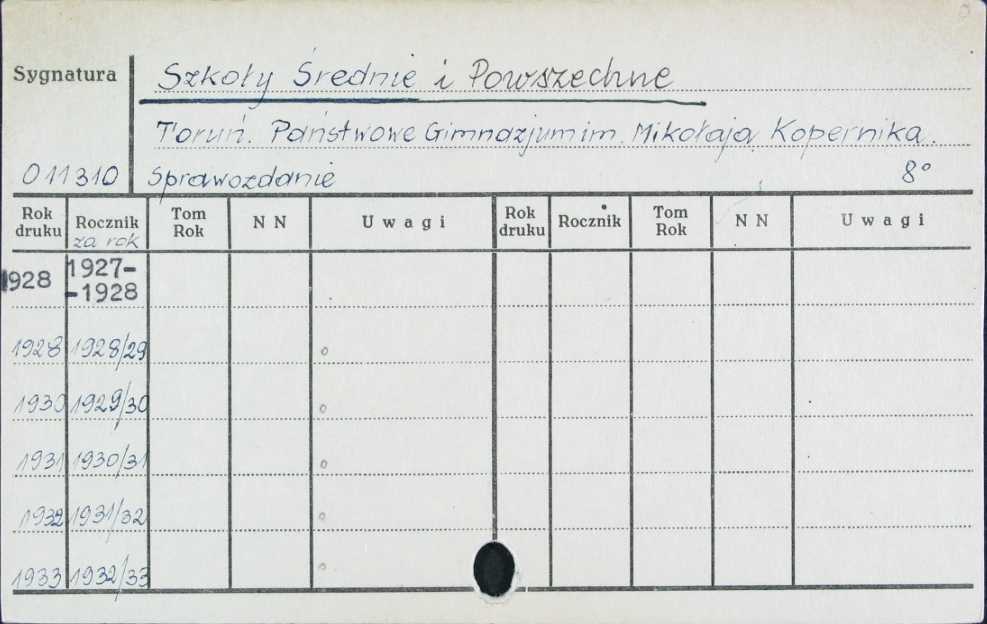 Sygnatura Szkoły Średnie i Powszechne
Toruń. Państwowe Gimnazjum im. Mikołaja Kopernika.
011310 Sprawozdanie 8°
Rok druku Rocznik za rok Tom Rok N N U w a g i Rok druku Rocznik Tom Rok N N U w a g i
1928 1927-
-1928
1928 1928/29
1930 1929/30
1931 1930/31
1932 1931/32
1933 1932/33